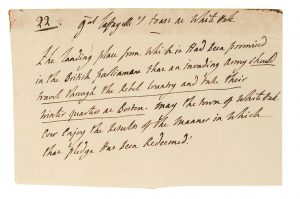 22. Gnl Lafayette's toast at White Hall
The landing place from which it Had been promised
in the British parliament that an invading Army should
travel through the rebel Country and take their
winter quarters at Boston. May the town of White Hall
Ever Enjoy the Results of the Manner in Which
that pledge Has been Redeemed!